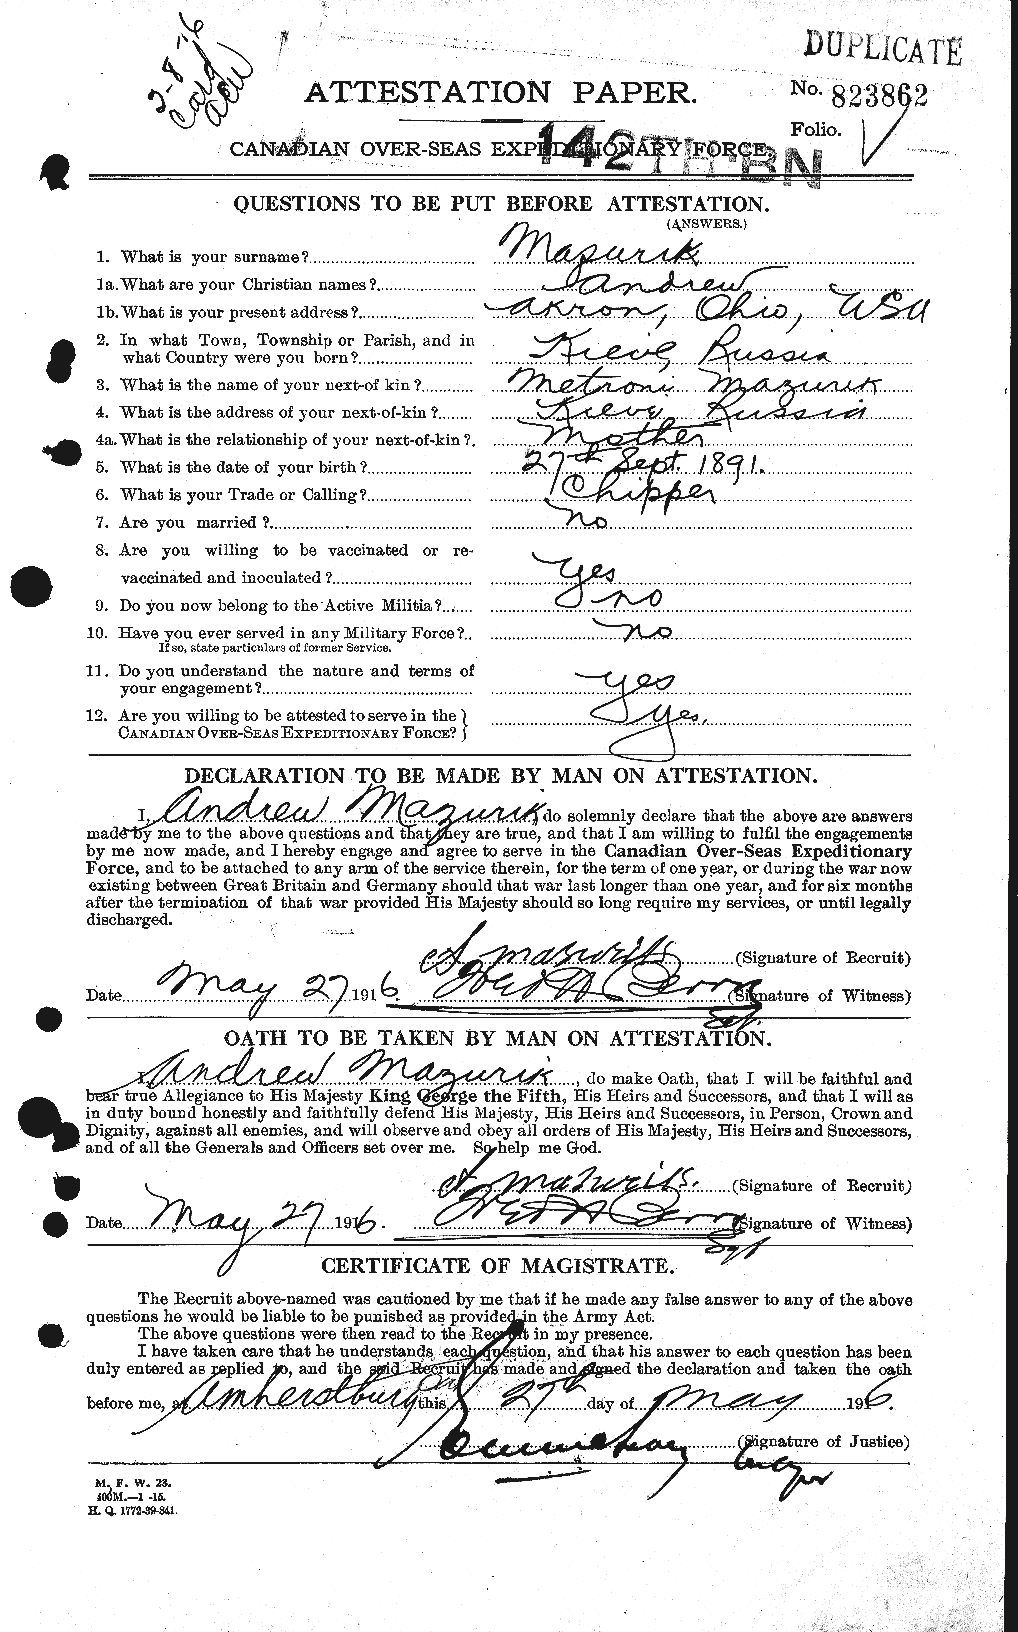 2-8-16
Card
DUPLICATE
ATTESTATION PAPER.
No. 823862
Folio.
CANADIAN OVER-SEAS EXPEDITIONARY FORCE
142TH BN
QUESTIONS TO BE PUT BEFORE ATTESTATION.
(ANSWERS.)
1. What is your surname? Mazurik
1a. What are your Christian names? Andrew
1b. What is your present address? Akron, Ohio, USA
2. In what Town, Township or Parish, and in
what Country were you born? Kieve, Russia
3. What is the name of your next-of kin? Metroni Mazurik
4. What is the address of your next-of-kin? Kieve, Russia
4a. What is the relationship of your next-of-kin? Mother
5. What is the date of your birth? 27th Sept. 1891.
6. What is your Trade or Calling? Chipper
7. Are you married? no
8. Are you willing to be vaccinated or re-
vaccinated and inoculated? yes
9. Do you now belong to the Active Militia? no
10. Have you ever served in any Military Force? no
If so, state particulars of former Service.
11. Do you understand the nature and terms of
your engagement? yes
12. Are you willing to be attested to serve in the
CANADIAN OVER-SEAS EXPEDITIONARY FORCE? yes.
DECLARATION TO BE MADE BY MAN ON ATTESTATION.
I, Andrew Mazurik, do solemnly declare that the above are answers
made by me to the above questions and that they are true, and that I am willing to fulfil the engagements
by me now made, and I hereby engage and agree to serve in the Canadian Over-Seas Expeditionary
Force, and to be attached to any arm of the service therein, for the term of one year, or during the war now
existing between Great Britain and Germany should that war last longer than one year, and for six months
after the termination of that war provided His Majesty should so long require my services, or until legally
discharged.
A. Mazurik (Signature of Recruit)
Date May 27 1916. Berry (Signature of Witness)
Sgt.
OATH TO BE TAKEN BY MAN ON ATTESTATION.
I, Andrew Mazurik, do make Oath, that I will be faithful and
bear true Allegiance to His Majesty King George the Fifth, His Heirs and Successors, and that I will as
in duty bound honestly and faithfully defend His Majesty, His Heirs and Successors, in Person, Crown and
Dignity, against all enemies, and will observe and obey all orders of His Majesty, His Heirs and Successors,
and of all the Generals and Officers set over me. So help me God.
A. Mazurik. (Signature of Recruit)
Date May 27 1916. Berry (Signature of Witness)
Sgt
CERTIFICATE OF MAGISTRATE.
The Recruit above-named was cautioned by me that if he made any false answer to any of the above
questions he would be liable to be punished as provided in the Army Act.
The above questions were then read to the Recruit in my presence.
I have taken care that he understands each question, and that his answer to each question has been
duly entered as replied to, and the said Recruit has made and signed the declaration and taken the oath
before me, at Amherstburg this 27th day of May 1916.
(Signature of Justice)
Mayor
M. F. W. 23.
400M.—1-15.
H. Q. 1772-39-841.